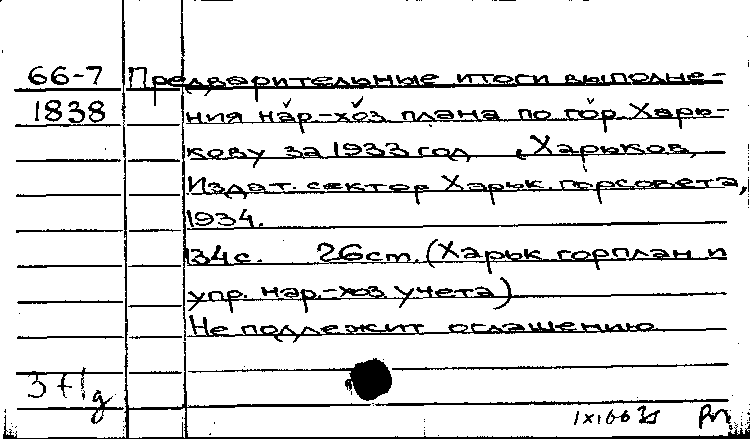 66-7 Предварительные итоги выполне-
1838 ния нар-хоз плана по гор. Харь-
кову за 1933 год Харьков,
Издат. сектор Харьк. горсовета,
1934.
34с. 26ст. (Харьк горплан и
упр. нар.-хоз учета)
Не подлежит оглашению